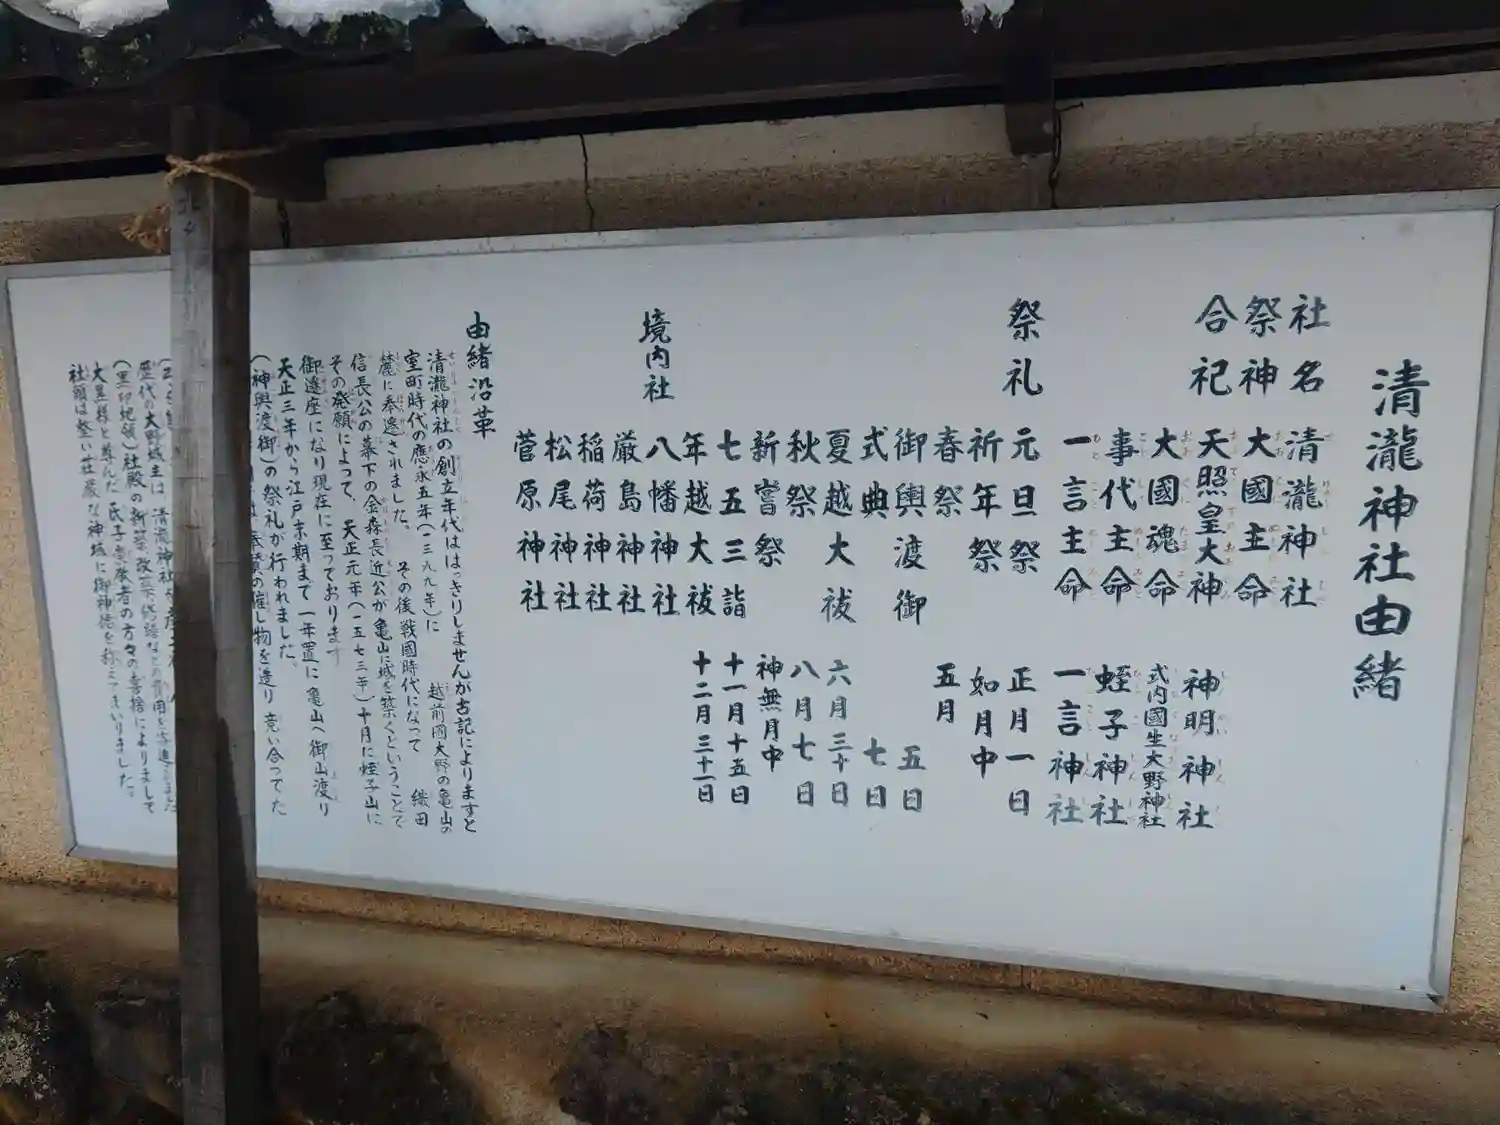 清瀧神社由緒
社名 清瀧神社
祭神 大國主命
合祀 天照皇大神 神明神社
大國魂命 式内國生大野神社
事代主命 蛭子神社
一言主命 一言神社
祭礼 元旦祭 正月一日
祈年祭 如月中
春祭 五月
御輿渡御 五日
式典 七日
夏越大祓 六月三十日
秋祭 八月七日
新嘗祭 神無月中
七五三詣 十一月十五日
年越大祓 十二月三十一日
境内社 八幡神社
厳島神社
稲荷神社
松尾神社
菅原神社
由緒沿革
清瀧神社の創立年代ははっきりしませんが古記によりますと
室町時代の應永五年(一三九九年)に 越前國大野の亀山の
麓に奉遷されました。 その後戦國時代になって 織田
信長公の幕下の金森長近公が亀山に城を築くということで
その発願によって、天正元年(一五七三年)十月に蛭子山に
御遷座になり現在に至っております
天正三年から江戸末期まで一年置に亀山へ御山渡り
(神輿渡御)の祭礼が行われました。
奉賛の催し物を造り 競い合ってた
歴代の大野城主は 清瀧神社
(黒印地領)社殿の新築改築修繕などの費用を
大昱様と尊んだ氏子崇敬者の方々の喜捨によりまして
社頭は整い荘厳な神域に御神徳を称えてまいりました。